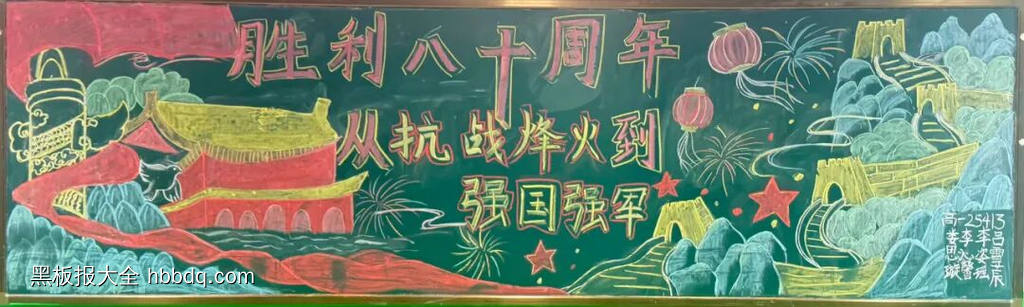 胜利八十周年
从抗战烽火到
强国强军
高一2413
黑板报大全 hbbdq.com